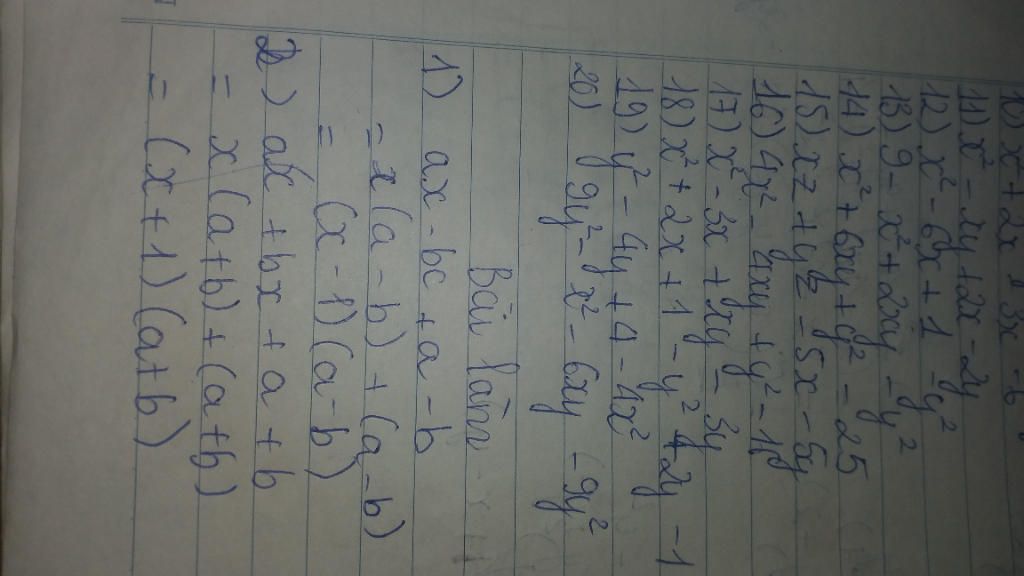 11) x² - xy + 2x - 2y
12) x² - 6x + 1 - y²
13) 9 - x² + 2xy - y²
14) x² + 6xy + y² - 25
15) xz + yz - 5x - 5y
16) 4x² - 4xy + y² - 1
17) x² - 3x + xy - 3y
18) x² + 2x + 1 - y² + 2y - 1
19) y² - 4y + 4 - 4x²
20) 9y² - x² - 6xy - 9y²
Bài làm
1) ax - bc + a - b
= x (a - b) + (a - b)
= (x - 1) (a - b)
2) ax + bx + a + b
= x (a + b) + (a + b)
= (x + 1) (a + b)